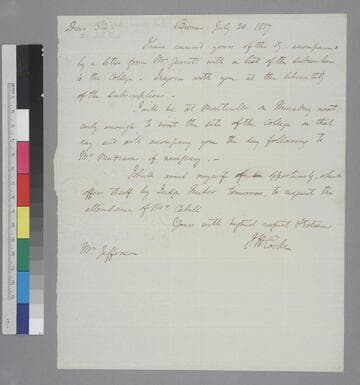 Dear Sir, Bremo July 20. 1817
I have received yours of the accompanied
by a letter from Mr. Garrett with a list of the subscribers
to the College. I rejoice with you at the liberality
of the subscriptions.
I will be at Monticello on Monday next
early enough to visit the site of the College on that
day and will accompany you the day following to
Mr. Madison's if necessary.—
I shall avail myself opportunity, which
offers itself by Judge tomorrow to request the
attendance of Mr. Cabell
Yours with highest respect & esteem
J H Cocke
Mr. Jefferson